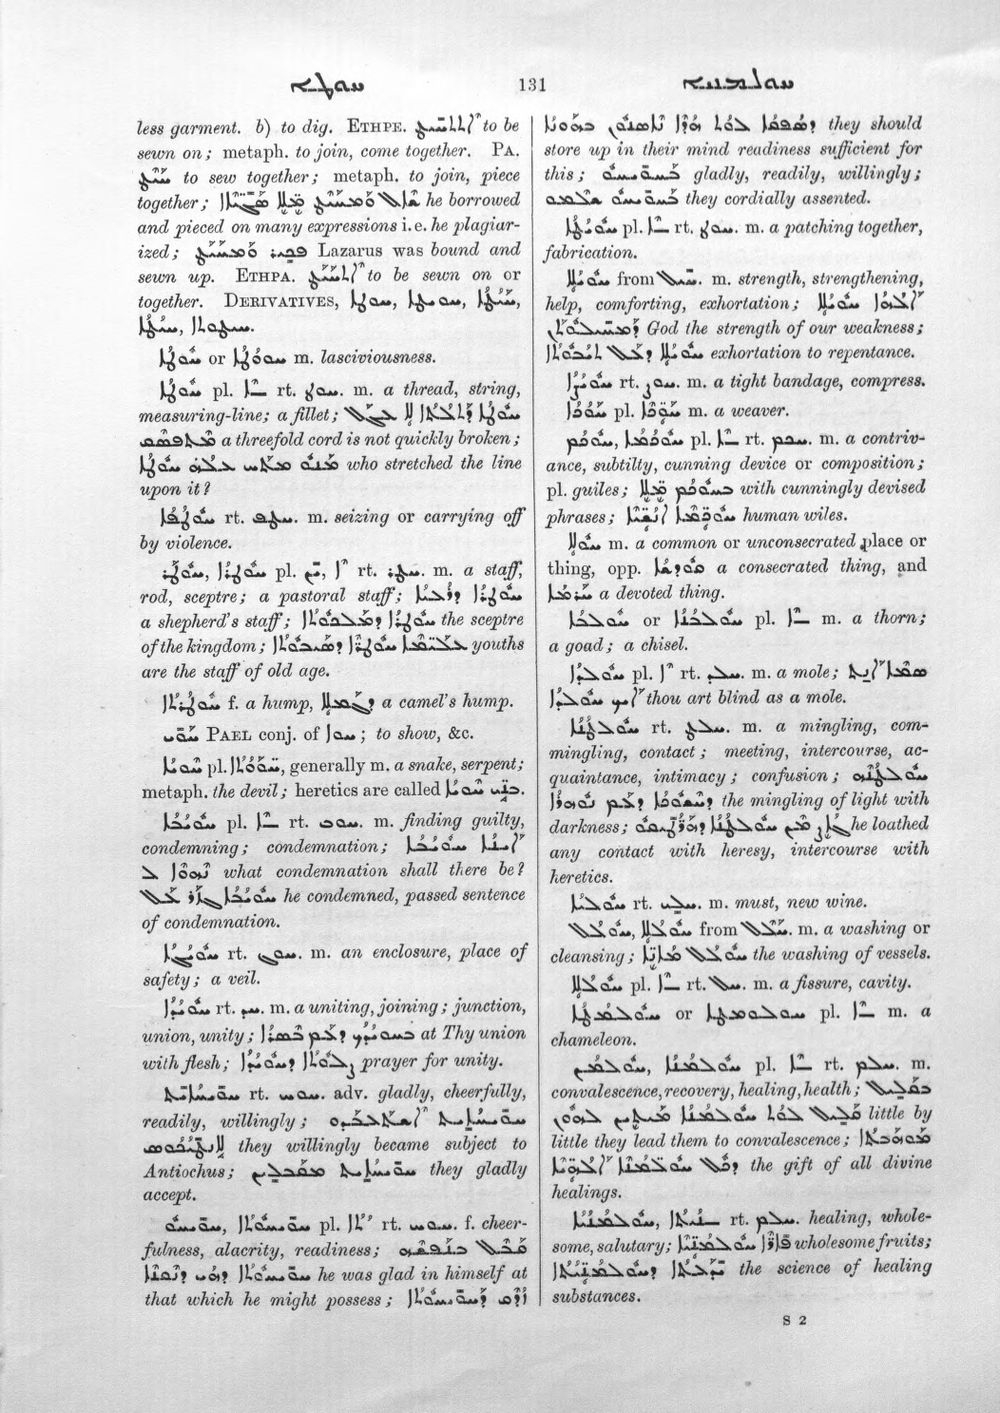 ܚܘܛܐ 131 ܚܘܠܡܢܝܐ
less garment. b) to dig. ETHPE. ܐܬܬܚܝܛ to be
sewn on; metaph. to join, come together. PA.
ܚܝܛ to sew together; metaph. to join, piece
together; ܫܐܠ ܘܡܚܝܛ ܡ̈ܠܐ ܣܓܝܐܬܐ he borrowed
and pieced on many expressions i. e. he plagiar-
ized; ܦܟܝܪ ܘܡܚܝܛ Lazarus was bound and
sewn up. ETHPA. ܐܬܚܝܛ to be sewn on or
together. DERIVATIVES, ܚܘܛܐ, ܚܘܝܛܐ, ܚܝܛܐ,
ܚܝܛܐ, ܚܝܛܘܬܐ.
ܚܘܛܐ or ܚܘܛܐ m. lasciviousness.
ܚܘܛܐ pl. ܐ rt. ܚܘܛ. m. a thread, string,
measuring-line; a fillet; ܚܘܛܐ ܕܬܠܬܐ ܠܐ ܥܓܠ
ܡܬܦܣܩ a threefold cord is not quickly broken;
ܡܢܘ ܡܬܚ ܥܠܝܗ ܚܘܛܐ who stretched the line
upon it?
ܚܘܛܦܐ rt. ܚܛܦ. m. seizing or carrying off
by violence.
ܚܘܛܪ, ܚܘܛܪܐ pl. ܪ̈ܝܢ, ܐ rt. ܚܛܪ. m. a staff,
rod, sceptre; a pastoral staff; ܚܘܛܪܐ ܕܪܥܝܐ
a shepherd's staff; ܚܘܛܪܐ ܕܡܠܟܘܬܐ the sceptre
of the kingdom; ܥܠܝ̈ܡܐ ܚܘܛܪܐ ܕܣܝܒܘܬܐ youths
are the staff of old age.
ܚܘܛܪܬܐ f. a hump, ܕܓܡܠܐ a camel's hump.
ܚܘܝ PAEL conj. of ܚܘܐ; to show, &c.
ܚܘܝܐ pl. ܚܘܘܬܐ, generally m. a snake, serpent;
metaph. the devil; heretics are called ܒܢ̈ܝ ܚܘܝܐ.
ܚܘܝܒܐ pl. ܐ rt. ܚܘܒ. m. finding guilty,
condemning; condemnation; ܐܝܢܐ ܚܘܝܒܐ
ܢܗܘܐ ܠ what condemnation shall there be?
ܚܘܝܒܐ ܓܙܪ ܥܠ he condemned, passed sentence
of condemnation.
ܚܘܝܓܐ rt. ܚܘܓ. m. an enclosure, place of
safety; a veil.
ܚܘܝܕܐ rt. ܚܕ. m. a uniting, joining; junction,
union, unity; ܒܚܘܝܕܟ ܕܥܡ ܒܣܪܐ at Thy union
with flesh; ܨܠܘܬܐ ܕܚܘܝܕܐ prayer for unity.
ܚܘܝܚܐܝܬ rt. ܚܘܚ. adv. gladly, cheerfully,
readily, willingly; ܚܘܝܚܐܝܬ ܐܫܬܥܒܕܘ
ܠܐܢܛܝܟܘܣ they willingly became subject to
Antiochus; ܚܘܝܚܐܝܬ ܡܩܒܠܝܢ they gladly
accept.
ܚܘܝܚܘ, ܚܘܝܚܘܬܐ pl. rt. ܚܘܚ. f. cheer-
fulness, alacrity, readiness; ܩܒܠ ܒܢܦܫܗ
ܚܘܝܚܘܬܐ he was glad in himself at
that which he might possess; ܚܘܝܚܘܬܐ
they should
store up in their mind readiness sufficient for
this; ܒܚܘܝܚܘ gladly, readily, willingly;
ܒܚܘܝܚܘ ܫܠܡܘ they cordially assented.
ܚܘܝܛܐ pl. ܐ rt. ܚܘܛ. m. a patching together,
fabrication.
ܚܘܝܠܐ from ܚܝܠ. m. strength, strengthening,
help, comforting, exhortation; ܐܠܗܐ ܚܘܝܠܐ
ܕܡܚܝܠܘܬܢ God the strength of our weakness;
ܚܘܝܠܐ ܕܥܠ ܬܝܒܘܬܐ exhortation to repentance.
ܚܘܝܨܐ rt. ܚܘܨ. m. a tight bandage, compress.
ܚܘܟܐ pl. ܚܘ̈ܟܐ m. a weaver.
ܚܘܟܡ, ܚܘܟܡܐ pl. ܐ rt. ܚܟܡ. m. a contriv-
ance, subtilty, cunning device or composition;
pl. guiles; ܒܚܘܟܡ ܡ̈ܠܐ with cunningly devised
phrases; ܚܘܟܡ̈ܐ ܐܢܫ̈ܝܐ human wiles.
ܚܘܠܐ m. a common or unconsecrated place or
thing, opp. ܩܘܕܫܐ a consecrated thing, and
ܚܪܡܐ a devoted thing.
ܚܘܠܒܐ or ܚܘܠܒܢܐ pl. ܐ m. a thorn;
a goad; a chisel.
ܚܘܠܕܐ pl. ܐ rt. ܚܠܕ. m. a mole; ܣܡܐ ܐܢܬ
ܐܝܟ ܚܘܠܕܐ thou art blind as a mole.
ܚܘܠܛܢܐ rt. ܚܠܛ. m. a mingling, com-
mingling, contact; meeting, intercourse, ac-
quaintance, intimacy; confusion; ܚܘܠܛܢܗ
ܕܚܫܘܟܐ ܕܥܡ ܢܘܗܪܐ the mingling of light with
darkness; he loathed
any contact with heresy, intercourse with
heretics.
ܚܘܠܝܐ rt. ܚܠܝ. m. must, new wine.
ܚܘܠܠ, ܚܘܠܠܐ from ܚܠܠ. m. a washing or
cleansing; ܚܘܠܠ ܡܐܢ̈ܐ the washing of vessels.
ܚܘܠܠܐ pl. ܐ rt. ܚܠ. m. a fissure, cavity.
ܚܘܠܡܛܐ or ܚܘܠܘܡܛܐ pl. ܐ m. a
chameleon.
ܚܘܠܡܢ, ܚܘܠܡܢܐ pl. ܐ rt. ܚܠܡ m.
convalescence, recovery, healing, health; ܒܩܠܝܠ
ܩܠܝܠ ܠܗ ܚܘܠܡܢܐ ܡܝܬܝܢ ܠܗܘܢ little by
little they lead them to convalescence; ܡܘܗܒܬܐ
ܕܟܠ ܚܘܠܡܢ̈ܐ ܐܠܗ̈ܝܐ the gift of all divine
healings.
ܚܘܠܡܢܝܐ, ܢܝܬܐ rt. ܚܠܡ. healing, whole-
some, salutary; ܦܐܪ̈ܐ ܚܘܠܡܢ̈ܝܐ wholesome fruits;
ܝܕܥܬܐ ܕܚܘܠܡܢ̈ܝܬܐ the science of healing
substances.
S 2